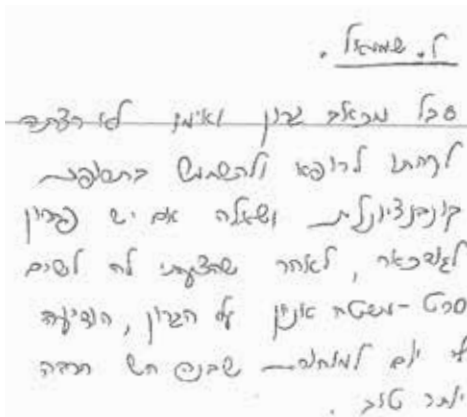 ל. שמואל.
סבל מכאב גרון ואימו לא רצתה
לקחתו לרופא ולהשתמש בתרופות
קונבנציונלית ושאלה אם יש פתרון
, לאחר שהצעתי לה לשים
סרט-משטח און על הגרון, הודיעה
לי יום למחרת שבנה חש הרבה
יותר טוב.